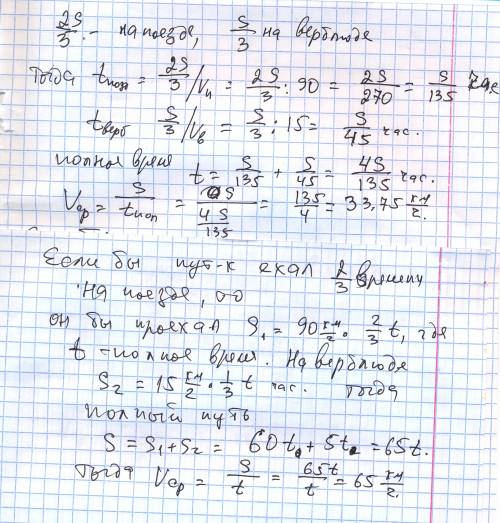 2S/3 - на поезде, S/3 на верблюде
Тогда tпоп = 2S/3 / Vп = 2S/3 : 90 = 2S/270 = S/135 час
tверб S/3 / Vв = S/3 : 15 = S/45 час.
полное время t = S/135 + S/45 = 4S/135 час.
Vср = S/tпоп = S/(4S/135) = 135/4 = 33,75 км/г.
Если бы пут-к ехал 2/3 времени
на поезде, то
он бы проехал S₁ = 90 км/г · 2/3 t, где
t - полное время. На верблюде
S₂ = 15 км/г · 1/3 t час. тогда
полный путь
S = S₁ + S₂ = 60t + 5t = 65t.
Тогда Vср = S/t = 65t/t = 65 км/г.